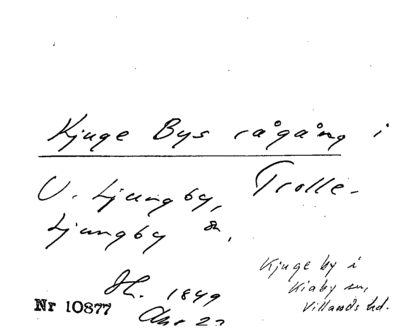 Kjuge Bys rågång i
V. Ljungby, Trolle-
Ljungby sn,
1849
Nr 10877
Kjuge by i
Kiaby sn,
Villands hd.